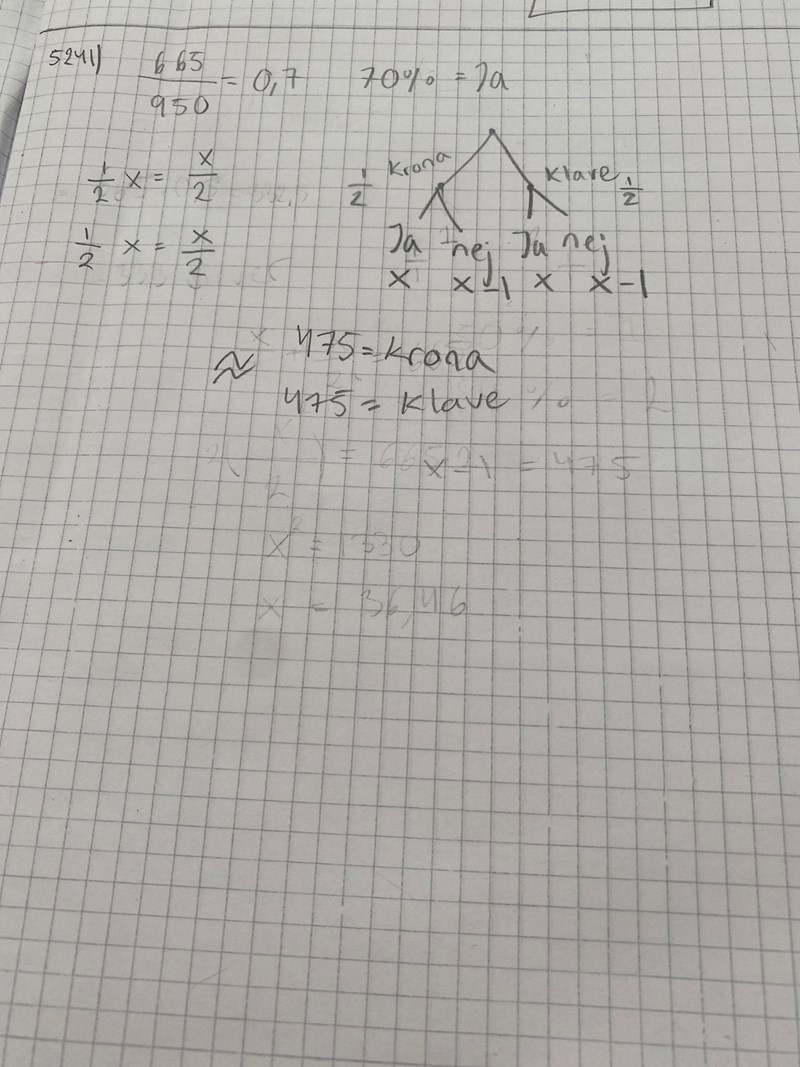 5241) 665/950 = 0,7 70% = Ja
1/2 x = x/2
1/2 x = x/2
1/2 Krona Klave 1/2
Ja nej Ja nej
x x-1 x x-1
≈ 475 = Krona
475 = Klave
x-1 = 475
x² = 1330
x = 36,46